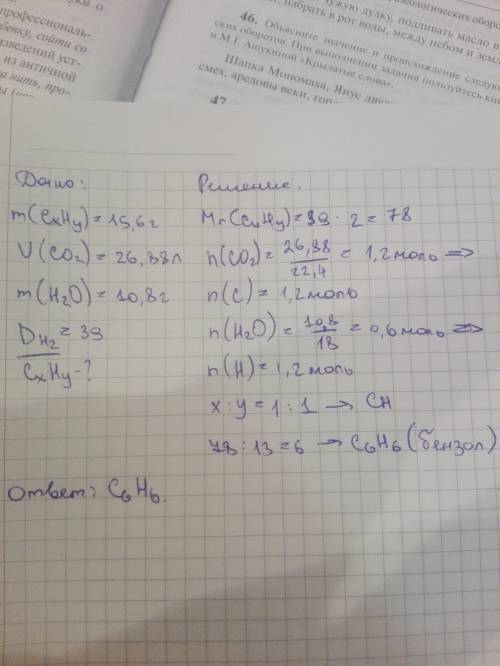 профессиональ-
бенку, сойти со
изведений уст-
из античной
на нить, про-
чужую дудку, подливать масло в
набрать в рот воды, между небом и
46. Объясните значение и происхождение следую
ских оборотов. При выполнении задания пользуйтесь кни
и М.Г. Ашукиной «Крылатые слова».
Шапка Мономаха, Янус
смех, аредовы веки,
47
Дано:
m(CxHy) = 15,6г
V(CO2) = 26,88л
m(H2O) = 10,8г
DH2 = 39
CxHy - ?
Решение.
Mr(CxHy) = 39 · 2 = 78
n(CO2) = 26,88/22,4 = 1,2 моль =>
n(C) = 1,2 моль
n(H2O) = 10,8/18 = 0,6 моль =>
n(H) = 1,2 моль
x : y = 1 : 1 → CH
78 : 13 = 6 → C6H6 (бензол)
Ответ: C6H6.